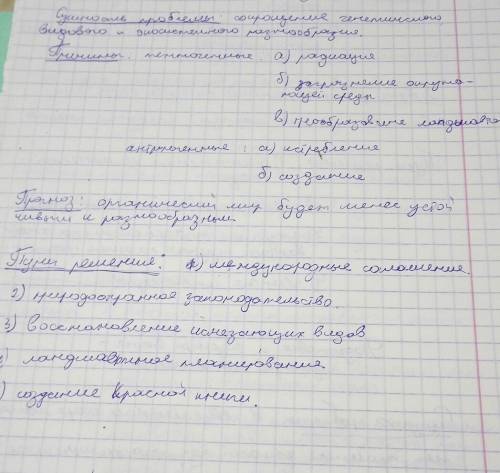 Сущность проблемы: сокращение генетического
видового и экосистемного разнообразия.
Причины: техногенные: а) радиация
б) загрязнение окружа-
ющей среды
в) преобразование ландшафта
антропогенные: а) истребление
б) создание
Прогноз: органический мир будет менее устой
чивым и разнообразным.
Пути решения: 1) международные соглашение.
2) природоохранное законодательство.
3) восстановление исчезающих видов
) ландшафтное планирование.
) создание Красной книги.